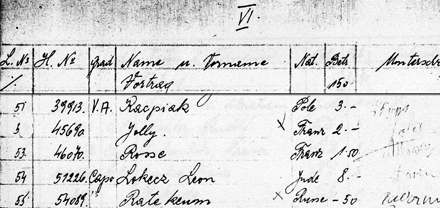 VI.
L. № H. № Grad Name u. Vorname Nat. Betr. Unterschr.
%. Vortrag 150
51 39913. V.A. Kacpiak Pole 3.-
3. 45690 Jolly. Franz 2.-
53. 46070. Rosse Franz 1.50
54 51226. Capo Lokecz Leon Jude 8.-
55 54089. Ratekeum Russe -50